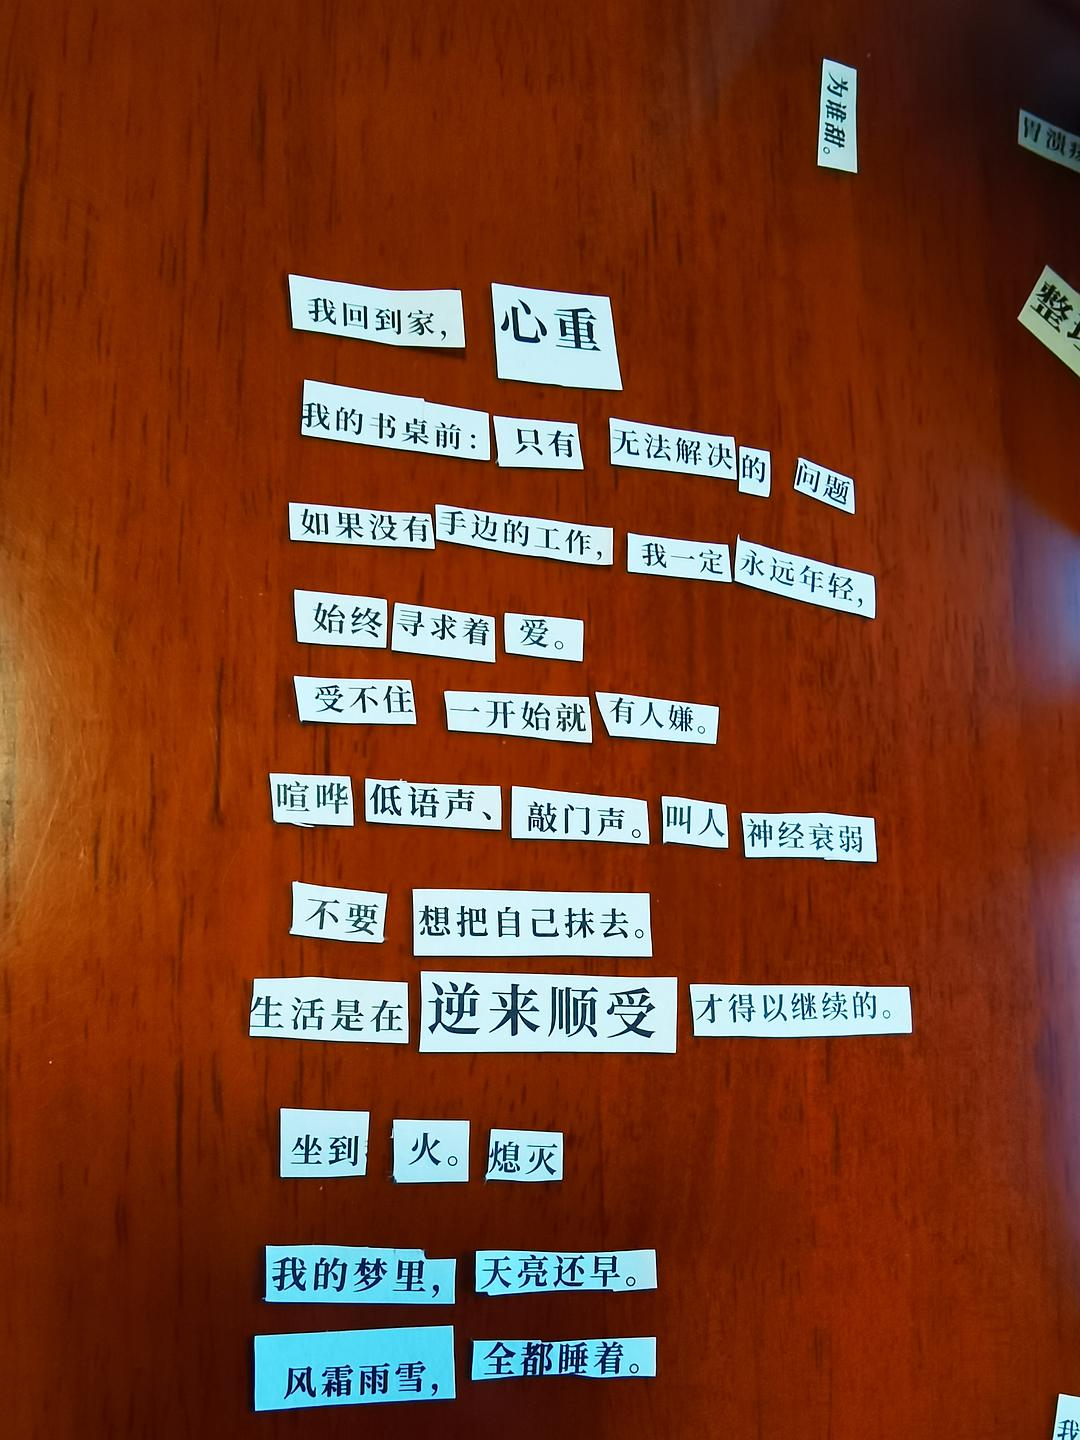 为谁甜。
胃溃疡
整
我回到家，心重
我的书桌前：只有 无法解决的 问题
如果没有手边的工作，我一定永远年轻，
始终寻求着 爱。
受不住 一开始就有人嫌。
喧哗 低语声、敲门声。叫人 神经衰弱
不要 想把自己抹去。
生活是在逆来顺受 才得以继续的。
坐到 火。熄灭
我的梦里，天亮还早。
风霜雨雪，全都睡着。
我